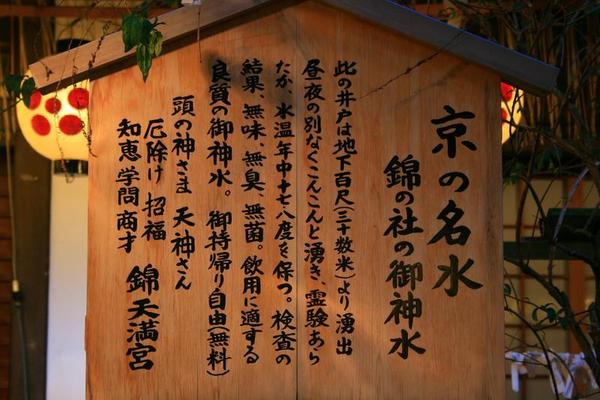 京の名水
錦の社の御神水
此の井戸は地下百尺(三十数米)より湧出
昼夜の別なくこんこんと湧き、霊験あら
たか 水温年中十七八度を保つ。検査の
結果、無味、無臭、無菌。飲用に適する
良質の御神水。御持帰り自由(無料)
頭の神さま 天神さん
厄除け 招福
知恵 学問 商才 錦天満宮